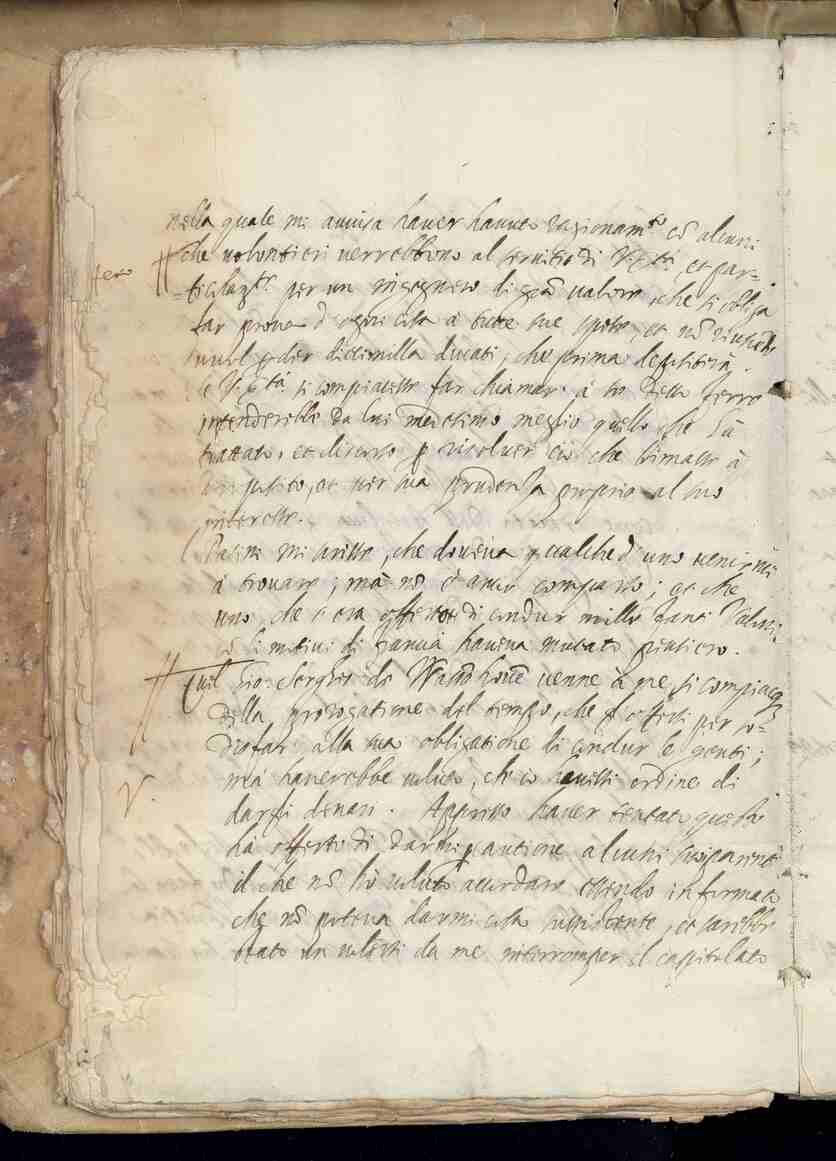 nella quale mi avvisa haver havuto ragionam.to cō alcuni
che volontieri verrebbono al servitio di V. S.tà, et par-
fero
-ticolarm.te per un ingegnero di grā valore, che si obliga
far prova d'ogni cosa à tutte sue spese, et nō riuscendo
vuol perder diecimilla ducati, che prima depositerà.
Se V. S.tà si compiacesse far chiamar à se detto ferro
intenderebbe da lui medesimo meglio quello che hà
trattato, et discorso p risolver ciò che stimasse à
proposito, et per sua prudenza proprio al suo
interesse.
mi scrisse, che doveva qualched'uno venirmi
à trovare; mà nō è ancor comparso; et che
uno, che s'era offerto di condur mille fanti Valloni
cō li motivi di Francia haveva mutato pensiero.
Quel Gio: Serghis de venne à me, si compiacq3
della prorogatione del tempo, che gl'offersi per so-
disfar alla sua obligatione di condur le genti;
V.
mà haverebbe voluto, ch'io havessi ordine di
dargli denari. Appresso haver tentato questo
hà offerto di darmi p cautione alcuni
il che nō hò voluto accordare essendo informato
che nō poteva darmi cosa sussistente, et sarebbe
stato un voler da me interromper il capitolato